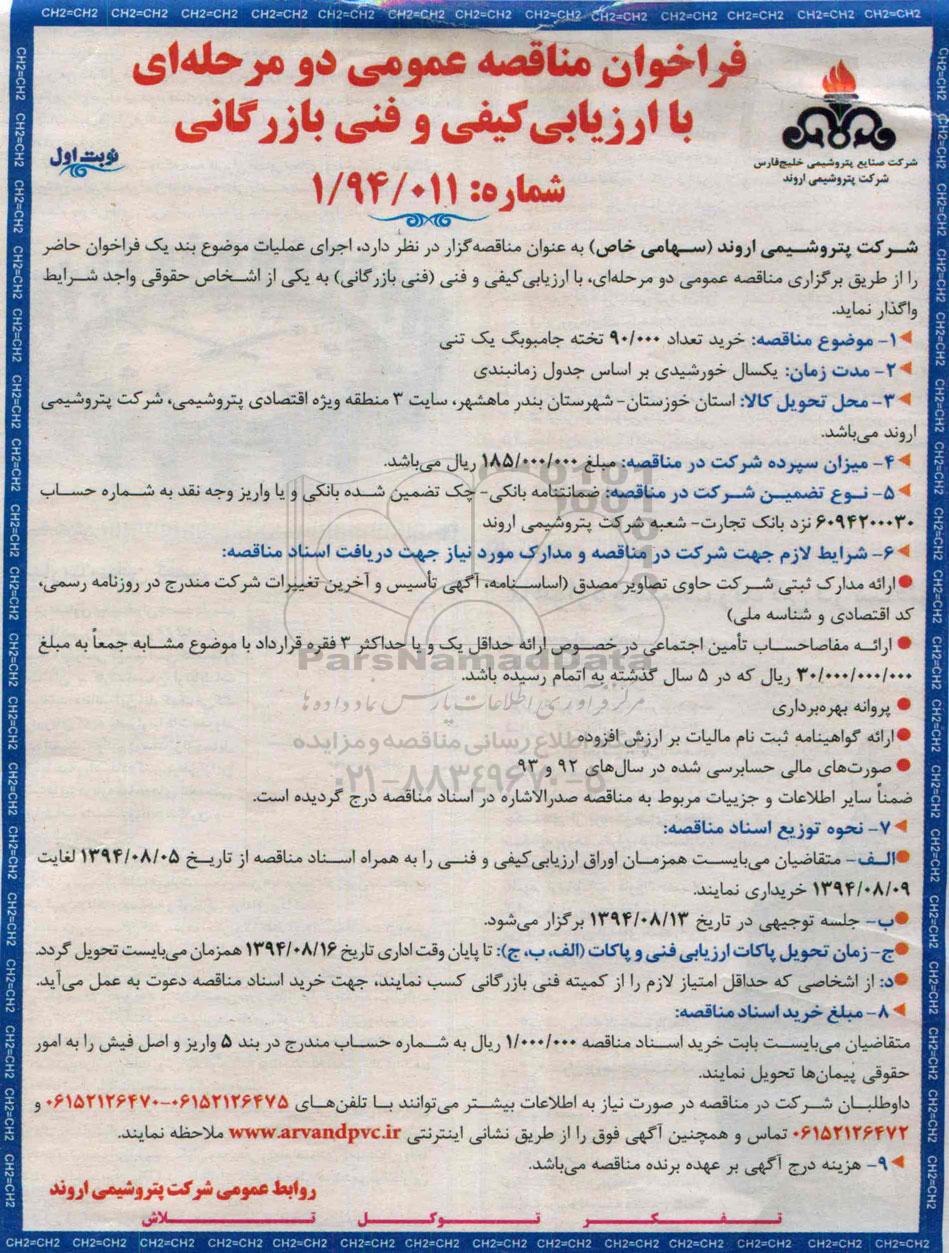 CH2=CH2 CH2=CH2 CH2=CH2 CH2=CH2 CH2=CH2 CH2=CH2 CH2=CH2 CH2=CH2 CH2=CH2 CH2=CH2 CH2=CH2 CH2=CH2 CH2=CH2
فراخوان مناقصه عمومی دو مرحله‌ای
با ارزیابی کیفی و فنی بازرگانی
شرکت صنایع پتروشیمی خلیج‌فارس
شرکت پتروشیمی اروند
نوبت اول
شماره: ۱/۹۴/۰۱۱
شرکت پتروشیمی اروند (سهامی خاص) به عنوان مناقصه‌گزار در نظر دارد، اجرای عملیات موضوع بند یک فراخوان حاضر
را از طریق برگزاری مناقصه عمومی دو مرحله‌ای، با ارزیابی کیفی و فنی (فنی بازرگانی) به یکی از اشخاص حقوقی واجد شرایط
واگذار نماید.
۱- موضوع مناقصه: خرید تعداد ۹۰/۰۰۰ تخته جامبوبگ یک تنی
۲- مدت زمان: یکسال خورشیدی بر اساس جدول زمانبندی
۳- محل تحویل کالا: استان خوزستان- شهرستان بندر ماهشهر، سایت ۳ منطقه ویژه اقتصادی پتروشیمی، شرکت پتروشیمی
اروند می‌باشد.
۴- میزان سپرده شرکت در مناقصه: مبلغ ۱۸۵/۰۰۰/۰۰۰ ریال می‌باشد.
۵- نوع تضمین شرکت در مناقصه: ضمانتنامه بانکی- چک تضمین شده بانکی و یا واریز وجه نقد به شماره حساب
۶۰۹۴۲۰۰۰۳۰ نزد بانک تجارت- شعبه شرکت پتروشیمی اروند
۶- شرایط لازم جهت شرکت در مناقصه و مدارک مورد نیاز جهت دریافت اسناد مناقصه:
● ارائه مدارک ثبتی شرکت حاوی تصاویر مصدق (اساسنامه، آگهی تأسیس و آخرین تغییرات شرکت مندرج در روزنامه رسمی،
کد اقتصادی و شناسه ملی)
● ارائه مفاصاحساب تأمین اجتماعی در خصوص ارائه حداقل یک و یا حداکثر ۳ فقره قرارداد با موضوع مشابه جمعاً به مبلغ
۳۰/۰۰۰/۰۰۰/۰۰۰ ریال که در ۵ سال گذشته به اتمام رسیده باشد.
● پروانه بهره‌برداری
● ارائه گواهینامه ثبت نام مالیات بر ارزش افزوده
● صورت‌های مالی حسابرسی شده در سال‌های ۹۲ و ۹۳
ضمناً سایر اطلاعات و جزییات مربوط به مناقصه صدرالاشاره در اسناد مناقصه درج گردیده است.
۷- نحوه توزیع اسناد مناقصه:
● الف- متقاضیان می‌بایست همزمان اوراق ارزیابی کیفی و فنی را به همراه اسناد مناقصه از تاریخ ۱۳۹۴/۰۸/۰۵ لغایت
۱۳۹۴/۰۸/۰۹ خریداری نمایند.
● ب- جلسه توجیهی در تاریخ ۱۳۹۴/۰۸/۱۳ برگزار می‌شود.
● ج- زمان تحویل پاکات ارزیابی فنی و پاکات (الف، ب، ج): تا پایان وقت اداری تاریخ ۱۳۹۴/۰۸/۱۶ همزمان می‌بایست تحویل گردد.
● د: از اشخاصی که حداقل امتیاز لازم را از کمیته فنی بازرگانی کسب نمایند، جهت خرید اسناد مناقصه دعوت به عمل می‌آید.
۸- مبلغ خرید اسناد مناقصه:
متقاضیان می‌بایست بابت خرید اسناد مناقصه ۱/۰۰۰/۰۰۰ ریال به شماره حساب مندرج در بند ۵ واریز و اصل فیش را به امور
حقوقی پیمان‌ها تحویل نمایند.
داوطلبان شرکت در مناقصه در صورت نیاز به اطلاعات بیشتر می‌توانند با تلفن‌های ۰۶۱۵۲۱۲۶۴۷۵-۰۶۱۵۲۱۲۶۴۷۰ و
۰۶۱۵۲۱۲۶۴۷۲ تماس و همچنین آگهی فوق را از طریق نشانی اینترنتی www.arvandpvc.ir ملاحظه نمایند.
۹- هزینه درج آگهی بر عهده برنده مناقصه می‌باشد.
روابط عمومی شرکت پتروشیمی اروند
تفکر توکل تلاش
ParsNamadData
مرکز فرآوری اطلاعات پارس نماد داده ها
پایگاه اطلاع رسانی مناقصه و مزایده
۰۲۱-۸۸۳۴۹۶۷۰-۵